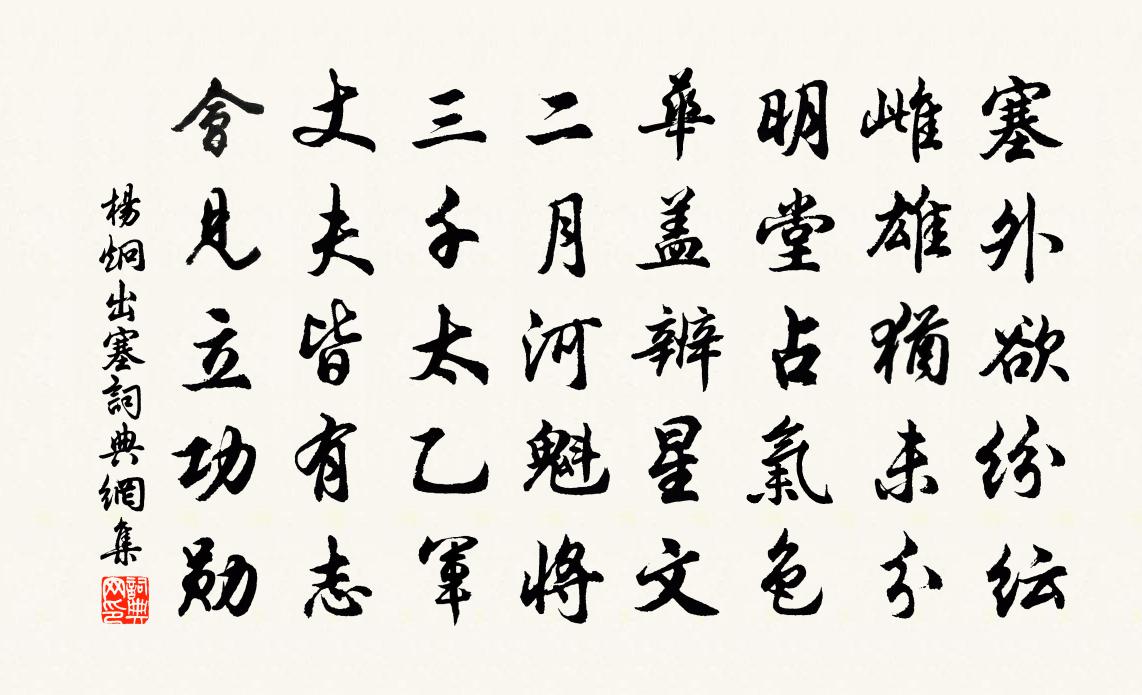 塞外欲紛纭
雌雄猶未分
明堂占氣色
華盖辨星文
二月河魁將
三千太乙軍
丈夫皆有志
會見立功勛
楊炯出塞詞典網集
詞典网印